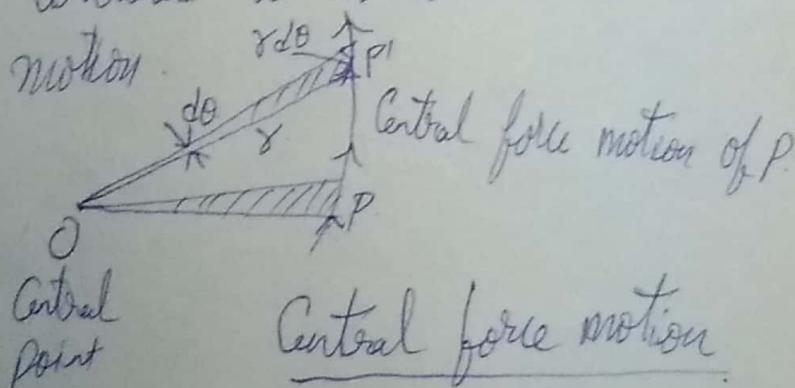 motion
rdθ
P'
dθ
r
Central force motion of P.
P
O
Central
Point
Central force motion